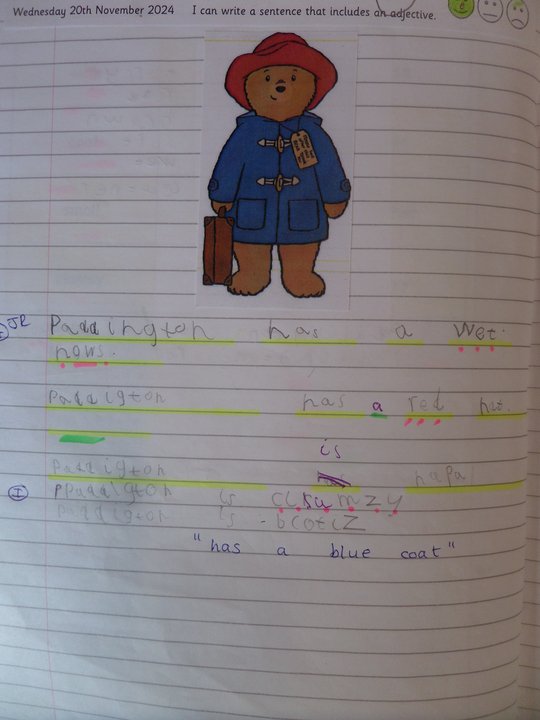 Wednesday 20th November 2024 I can write a sentence that includes an adjective.
JR Paddington has a wet.
nows.
Paddigton has a red hat.
is
Paddigton hapa
I Ppaddigton is clsumzy
Paddigton is bcotcz
"has a blue coat"